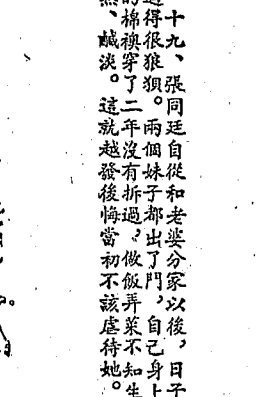 十九、張同廷自從和老婆分家以後，日子
過得很狼狽。兩個妹子都出了門，自己身上
的棉襖穿了二年沒有拆過，做飯弄菜不知生
熟、鹹淡。這就越發後悔當初不該虐待她。